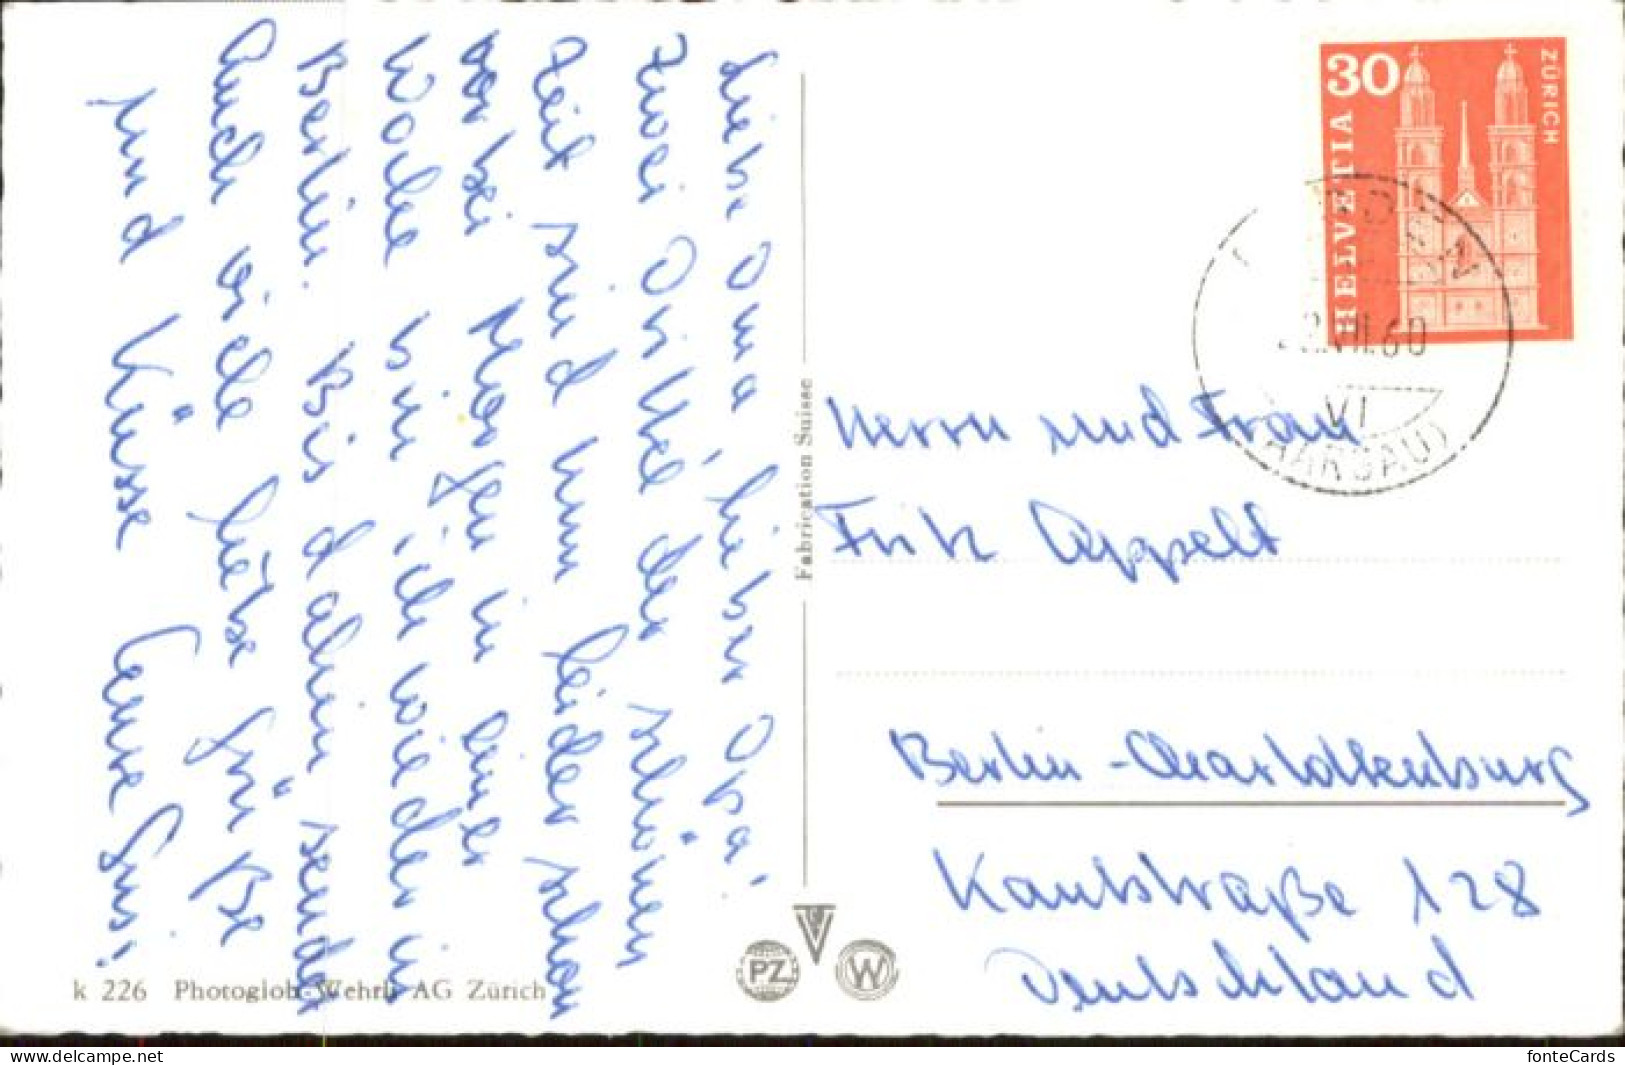 Liebe Oma, lieber Opa!
Zwei Drittel der schönen
Zeit sind nun leider schon
vorbei. Morgen in einer
Woche bin ich wieder in
Berlin. Bis dahin sendet
Euch viele liebe Grüße
und Küsse Eure Susi.
Fabrication Suisse
k 226 Photoglob-Wehrli AG Zürich
PZ
W
30
HELVETIA
ZÜRICH
VII.60
VI
(AARGAU)
Herrn und Frau
Fritz Appelt
Berlin-Charlottenburg
Kantstraße 128
Deutschland
fonteCards
Powered by TCPDF (www.tcpdf.org)